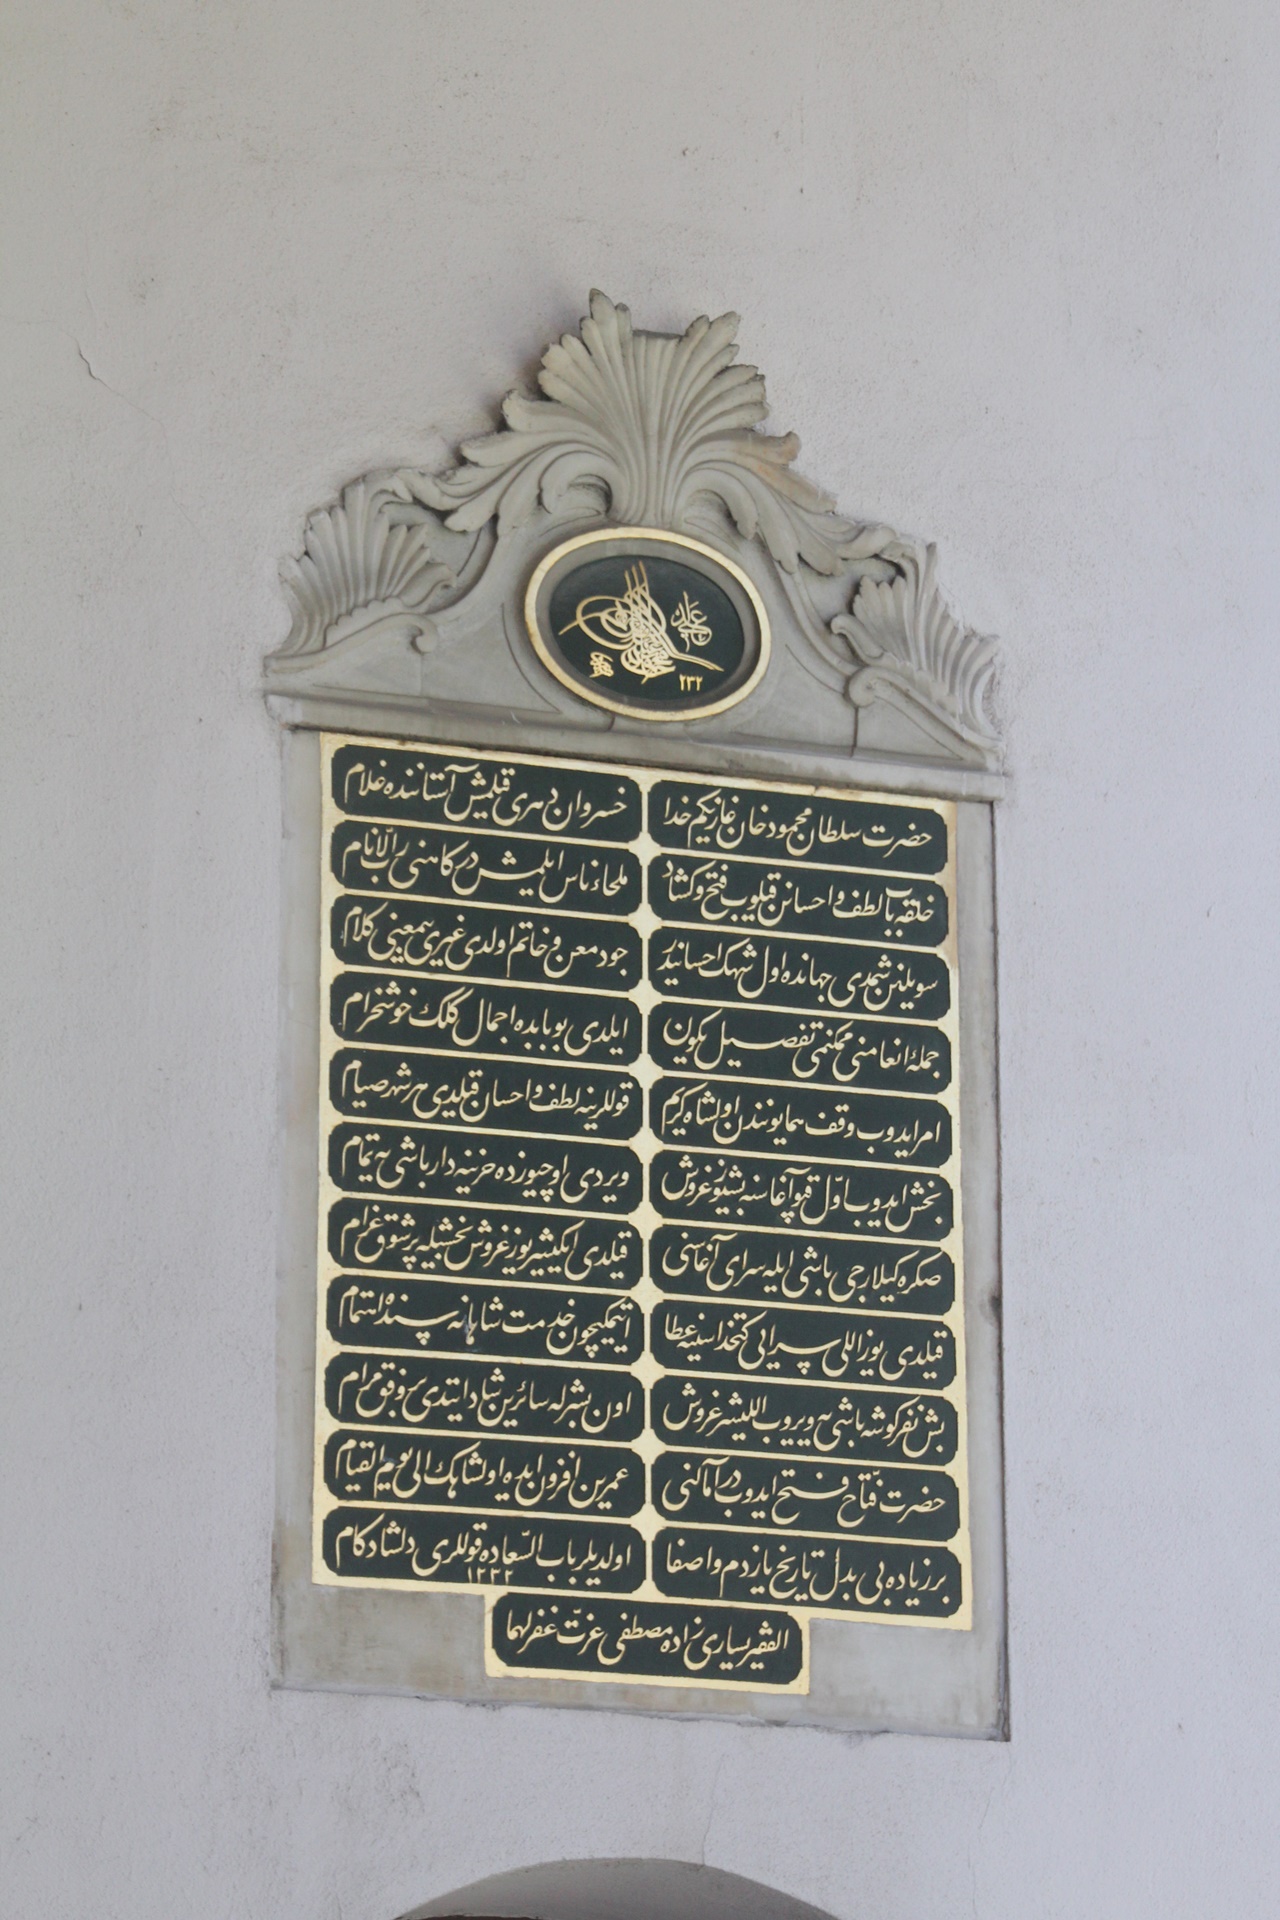 عدلی
٢٣٢
حضرت سلطان محمود خان غازیکم خدا
خسروان دهری قیلمش آستاننده غلام
خلقه باب لطف و احسانن قیلوب فتح و کشاد
ملجاء ناس ایلمیش درکاهنی رب الانام
سویلنن شمدی جهانده اول شهک احسانیدر
جود معن و خاتم اولدی غیری بیمعنی کلام
جملۀ انعامنی ممکنمی تفصیل بکون
ایلدی بو بابده اجمال کلک خوشخرام
امر ایدوب وقف همایونندن اولشاه کریم
قوللرینه لطف و احسان قیلدی هر شهر صیام
بخش ایدوب اوّل قپو آغاسنه بشیوز غروش
ویردی اوچیوزده خزینه دار باشی یه تمام
صکره کیلارجی باشی ایله سرای آغاسنی
قیلدی ایکیشیر یوز غروش بخشیله پر شوق غرام
قیلدی یوز اللی سرایی کتخداسینه عطا
اتیمکیچون خدمت شاهانه سنده اهتمام
بش نفر کوشه باشی یه ویروب اللیشر غروش
اون بشرله سائرین شاد ایتدی بر وفق مرام
حضرت فتّاح فتح ایدوب در آماکنی
عمرین افزون ایده اولشاهک الی یوم القیام
برزیاده بی بدل تاریخ یازدم واصفا
اولدیلر باب السّعاده قوللری دلشادکام
١٢٣٢
الفقیر یساری زاده مصطفی عزّت غفر لهما